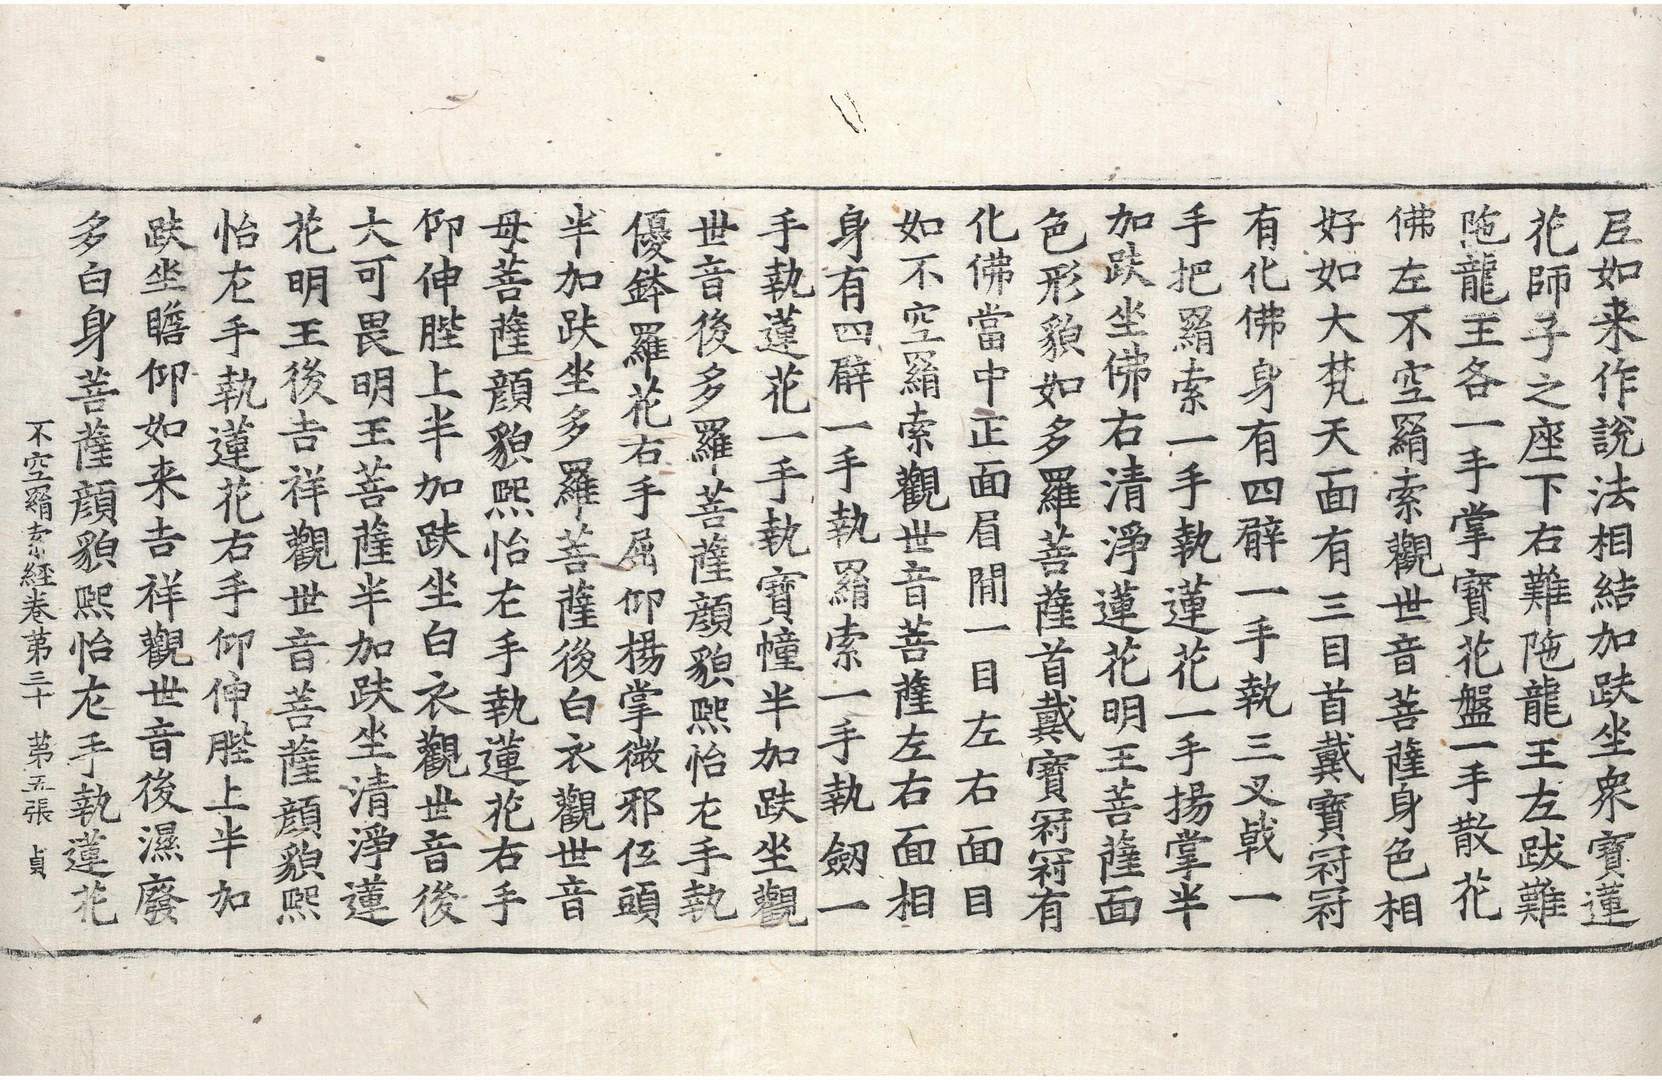 尼如来作說法相結加趺坐衆寶蓮
花師子之座下右難陁龍王左跋難
陁龍王各一手掌寶花盤一手散花
佛左不空羂索觀世音菩薩身色相
好如大梵天面有三目首戴寶冠冠
有化佛身有四臂一手執三叉戟一
手把羂索一手執蓮花一手揚掌半
加趺坐佛右清淨蓮花明王菩薩面
色形貌如多羅菩薩首戴寶冠冠有
化佛當中正面眉間一目左右面目
如不空羂索觀世音菩薩左右面相
身有四臂一手執羂索一手執劒一
手執蓮花一手執寶幢半加趺坐觀
世音後多羅菩薩顔貌熙怡左手執
優鉢羅花右手屈仰揚掌微邪伍頭
半加趺坐多羅菩薩後白衣觀世音
母菩薩顔貌熙怡左手執蓮花右手
仰伸䏶上半加趺坐白衣觀世音後
大可畏明王菩薩半加趺坐清淨蓮
花明王後吉祥觀世音菩薩顔貌熙
怡左手執蓮花右手仰伸䏶上半加
趺坐瞻仰如来吉祥觀世音後濕廢
多白身菩薩顔貌熙怡左手執蓮花
不空羂索經卷第三十 第五張 貞